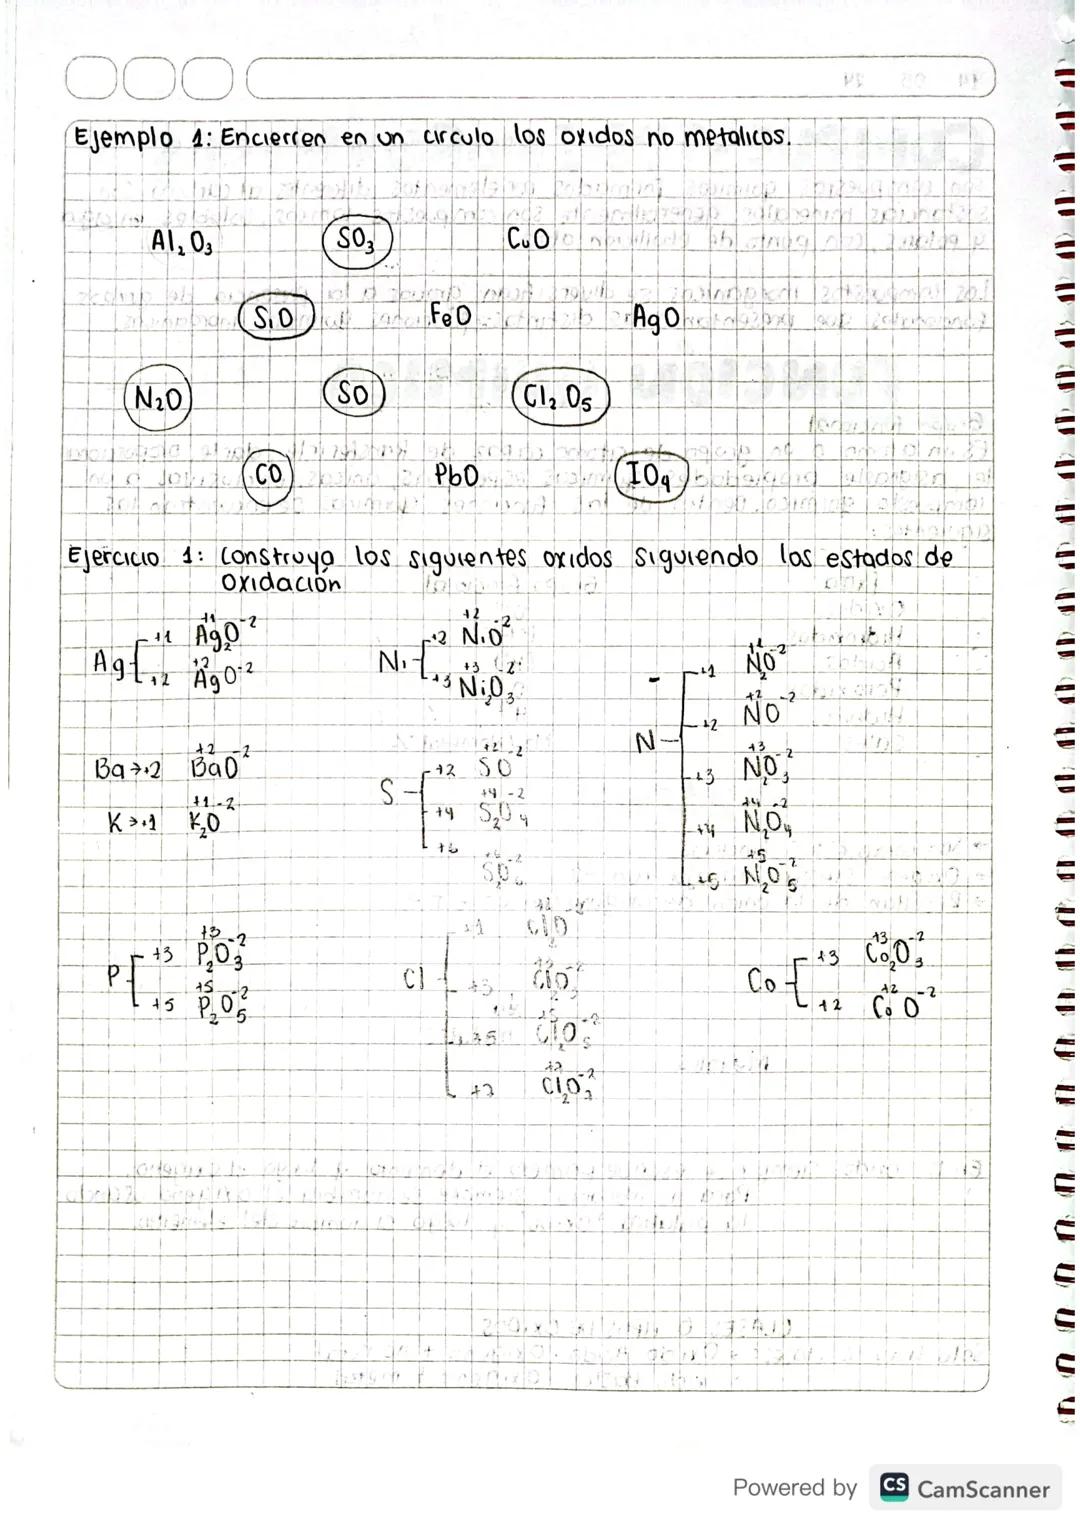 Ejemplo 1: Encierren en un circulo los oxidos no metalicos.
Al₂O₃ SO₃ CuO
SiO FeO AgO
N₂O SO Cl₂O₅
CO PbO IO₄
Ejercicio 1: Construya los siguientes oxidos siguiendo los estados de
oxidación
Ag +1 Ag₂⁺¹O⁻²
+2 Ag⁺²O⁻²
Ni +2 Ni⁺²O⁻²
+3 Ni₂⁺³O₃⁻²
N +1 N₂⁺¹O⁻²
+2 N⁺²O⁻²
+3 N₂⁺³O₃⁻²
+4 N₂⁺⁴O₄⁻²
+5 N₂⁺⁵O₅⁻²
Ba→+2 Ba⁺²O⁻²
K→+1 K₂⁺¹O⁻²
S +2 S⁺²O⁻²
+4 S₂⁺⁴O₄⁻²
+6
P +3 P₂⁺³O₃⁻²
+5 P₂⁺⁵O₅⁻²
Cl +1 Cl₂O
+3
Cl₂⁺⁵O₅⁻²
Cl₂O₇⁻²
Co +3 Co₂⁺³O₃⁻²
+2 Co⁺²O⁻²
Powered by CS CamScanner